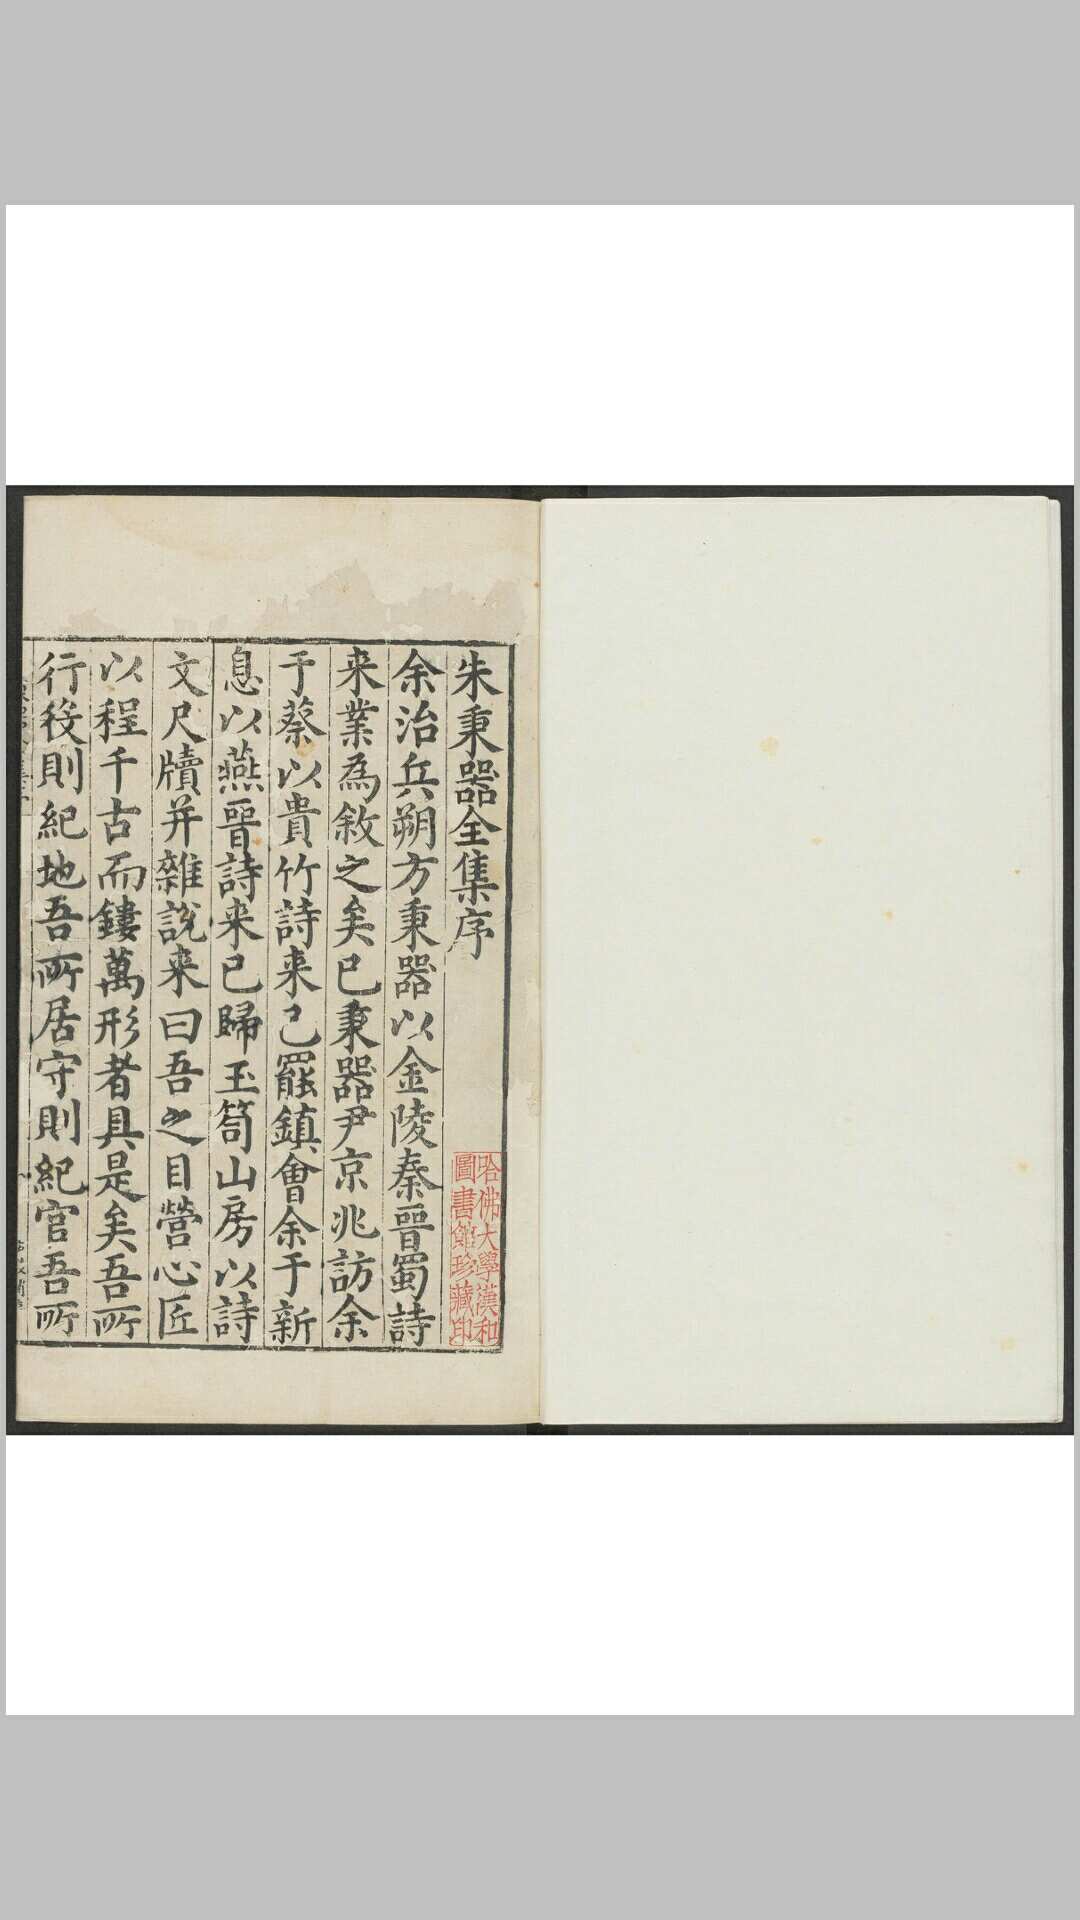 朱秉器全集序
余治兵朔方秉器以金陵秦晉蜀詩
来業為敘之矣已秉器尹京兆訪余
于蔡以貴竹詩来已罷鎮會余于新
息以燕晉詩来已歸玉笥山房以詩
文尺牘并雜說来曰吾之目營心匠
以程千古而鏤萬形者具是矣吾所
行役則紀地吾所居守則紀官吾所
哈佛大學漢和
圖書館珍藏印